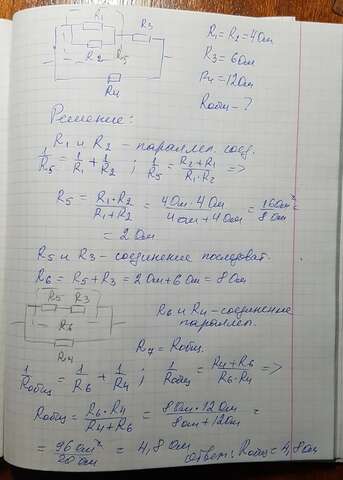 R₁
R₃
R₂
R₅
R₄
R₁ = R₂ = 4 Ом
R₃ = 6 Ом
R₄ = 12 Ом
Rобщ - ?
Решение:
R₁ и R₂ - параллел. соед.
1/R₅ = 1/R₁ + 1/R₂ ; 1/R₅ = (R₂ + R₁)/(R₁·R₂) =>
R₅ = (R₁·R₂)/(R₁ + R₂) = (4 Ом · 4 Ом)/(4 Ом + 4 Ом) = 16 Ом²/8 Ом =
= 2 Ом
R₅ и R₃ - соединение последоват.
R₆ = R₅ + R₃ = 2 Ом + 6 Ом = 8 Ом
R₅ R₃
R₆
R₄
R₆ и R₄ - соединение
параллел.
R₇ = Rобщ.
1/Rобщ = 1/R₆ + 1/R₄ ; 1/Rобщ = (R₄ + R₆)/(R₆·R₄) =>
Rобщ = (R₆·R₄)/(R₄ + R₆) = (8 Ом · 12 Ом)/(8 Ом + 12 Ом) =
= 96 Ом²/20 Ом = 4,8 Ом
Ответ: Rобщ = 4,8 Ом